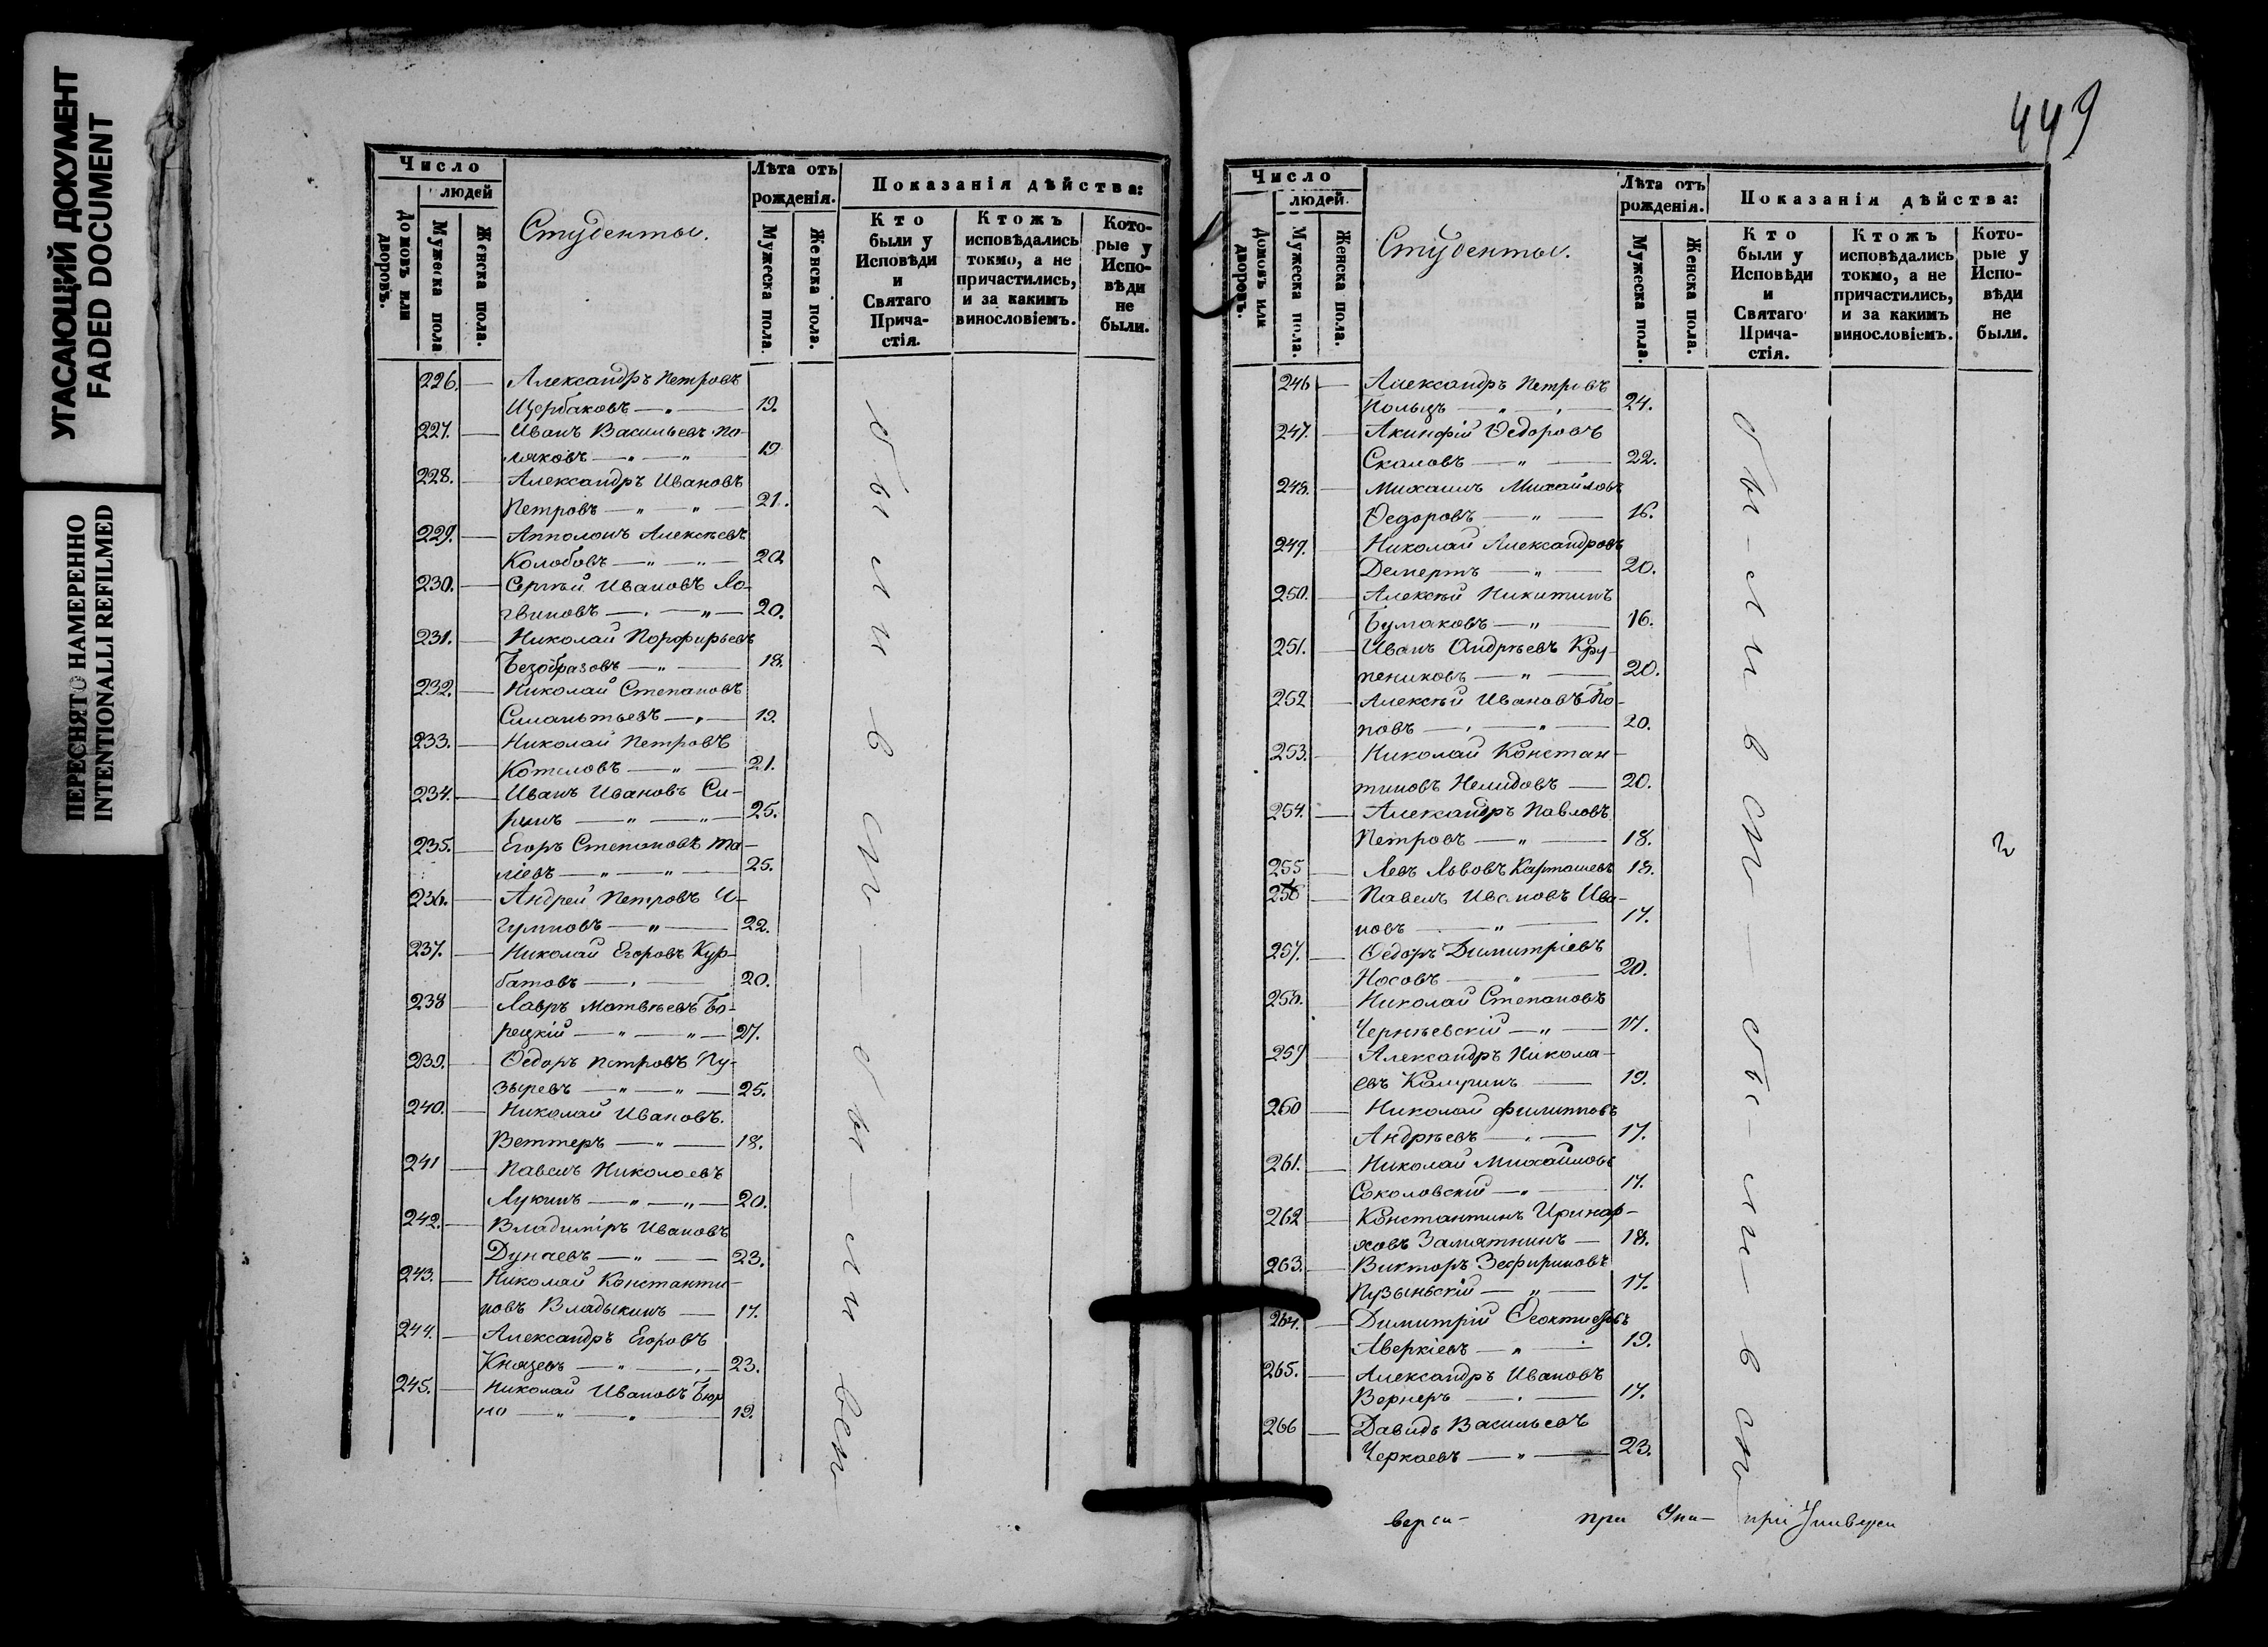 УГАСАЮЩИЙ ДОКУМЕНТ
FADED DOCUMENT
ПЕРЕСНЯТО НАМЕРЕННО
INTENTIONALLI REFILMED
Число
людей
Домовъ или дворовъ.
Мужеска пола
Женска пола.
Студенты.
Лѣта отъ
рожденія.
Мужеска пола.
Женска пола.
Показанія дѣйства:
Кто
были у
Исповѣди
и
Святаго
Прича-
стія.
Ктожъ
исповѣдались
токмо, а не
причастились,
и за какимъ
винословіемъ.
Кото-
рые у
Испо-
вѣди
не
были.
226. — Александръ Петровъ
Щербаковъ — „ — 19.
227. — Иванъ Васильевъ По-
ляковъ — „ — „ 19
228. — Александръ Ивановъ
Петровъ — „ — „ — 21.
229. — Апполонъ Алексѣевъ
Колобовъ — „ — „ — 20
230. — Сергѣй Ивановъ Ло-
гвиновъ — . — „ — 20.
231. — Николай Порфирьевъ
Безобразовъ — „ — 18.
232. — Николай Степановъ
— „ — 19.
233. — Николай Петровъ
Котеловъ — „ — 21.
234. — Иванъ Ивановъ Си-
ринъ — „ — „ — 25.
235. — Егоръ Степановъ Та-
ліевъ — „ — „ — 25.
236. — Андрей Петровъ И-
гумновъ — „ — 22.
237. — Николай Егоровъ Кур-
батовъ — . — 20.
238 — Лавръ Матвѣевъ Бо-
рецкій — „ — „ — 27.
239. Ѳедоръ Петровъ Пу-
зыревъ — „ — „ — 25.
240. — Николай Ивановъ.
Веттеръ — „ — 18.
241 — Павелъ Николаевъ
Лукинъ — „ — „ — 20.
242. — Владиміръ Ивановъ
Дунаевъ — „ — 23.
243. — Николай Константи-
новъ Владыкинъ — 17.
244. — Александръ Егоровъ
Князевъ — „ — . — 23.
245. — Николай Ивановъ Бюр
но — „ — „ — 19.
были вси — были вси
449
Число
людей.
Домовъ или дворовъ.
Мужеска пола.
Женска пола.
Студенты.
Лѣта отъ
рожденія.
Мужеска пола.
Женска пола.
Показанія дѣйства:
Кто
были у
Исповѣди
и
Святаго
Прича-
стія.
Ктожъ
исповѣдались
токмо, а не
причастились,
и за какимъ
винословіемъ.
Кото-
рые у
Испо-
вѣди
не
были.
246 — Александръ Петровъ
Польцъ — „ — , — 24.
247. — Акинфій Ѳедоровъ
Скаловъ — „ — 22.
248. — Михаилъ Михайловъ
Ѳедоровъ — „ — 16.
249. — Николай Александровъ
Демертъ — „ — 20.
250. — Алексѣй Никитинъ
Бумаковъ — „ — 16.
251. — Иванъ Андрѣевъ Кру-
пениковъ — „ — 20.
252 — Алексѣй Ивановъ По-
повъ — . — „ — 20.
253. — Николай Констан-
тиновъ Нелидовъ — 20.
254. — Александръ Павловъ
Петровъ — „ — 18.
255 — Левъ Львовъ Карташевъ 18.
256 — Павелъ Ивановъ Ива-
новъ — „ — 17.
257. — Ѳедоръ Димитріевъ
Носовъ — „ — 20.
258. — Николай Степановъ
Чернѣевскій — „ — 17.
259 — Александръ Никола-
евъ Камринъ — 19.
260 — Николай Филипповъ
Андрѣевъ — . — 17.
261. — Николай Михайловъ
Соколовскій — „ — 17.
262 — Константинъ Иринар-
ховъ Замятнинъ — 18.
263. — Викторъ Зефириновъ
Пузыньскій — „ — 17.
264. — Димитрій Ѳеоктистовъ
Аверкіевъ — „ — 19.
265. — Александръ Ивановъ
Вернеръ — . — 17.
266 — Давидъ Васильевъ
Черкаевъ — „ — 23.
бы-ли вси — бы-ли вси
верси- при Уни- при Универси